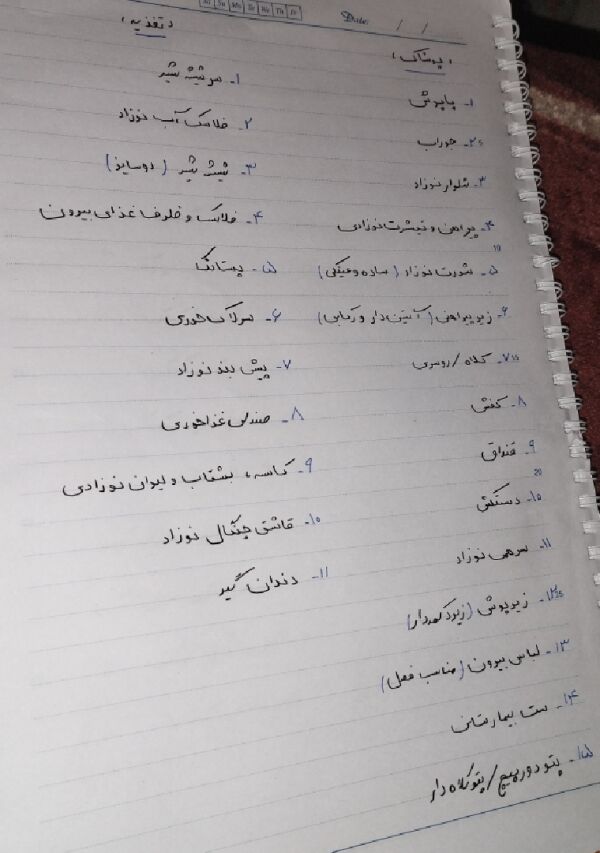 Date: / /
« پوشاک »
۱- پاپوش
۲- جوراب
۳- شلوار نوزاد
۴- پیراهن و تیشرت نوزادی
۵- شورت نوزاد (ساده و عینکی)
۶- زیرپیراهنی (آستین دار و رکابی)
۷- کلاه / روسری
۸- کفش
۹- قنداق
۱۰- دستکش
۱۱- سرهمی نوزاد
۱۲- زیرپوش (زیر دکمه‌دار)
۱۳- لباس بیرون (مناسب فصل)
۱۴- ست بیمارستانی
۱۵- پتو دورپیچ / پتو کلاه دار
« تغذیه »
۱- سر شیشه شیر
۲- فلاسک آب نوزاد
۳- شیشه شیر (دو سایز)
۴- فلاسک و ظرف غذای بیرون
۵- پستانک
۶- سرلاک خوری
۷- پیش بند نوزاد
۸- صندلی غذاخوری
۹- کاسه، بشقاب و لیوان نوزادی
۱۰- قاشق چنگال نوزاد
۱۱- دندان گیر